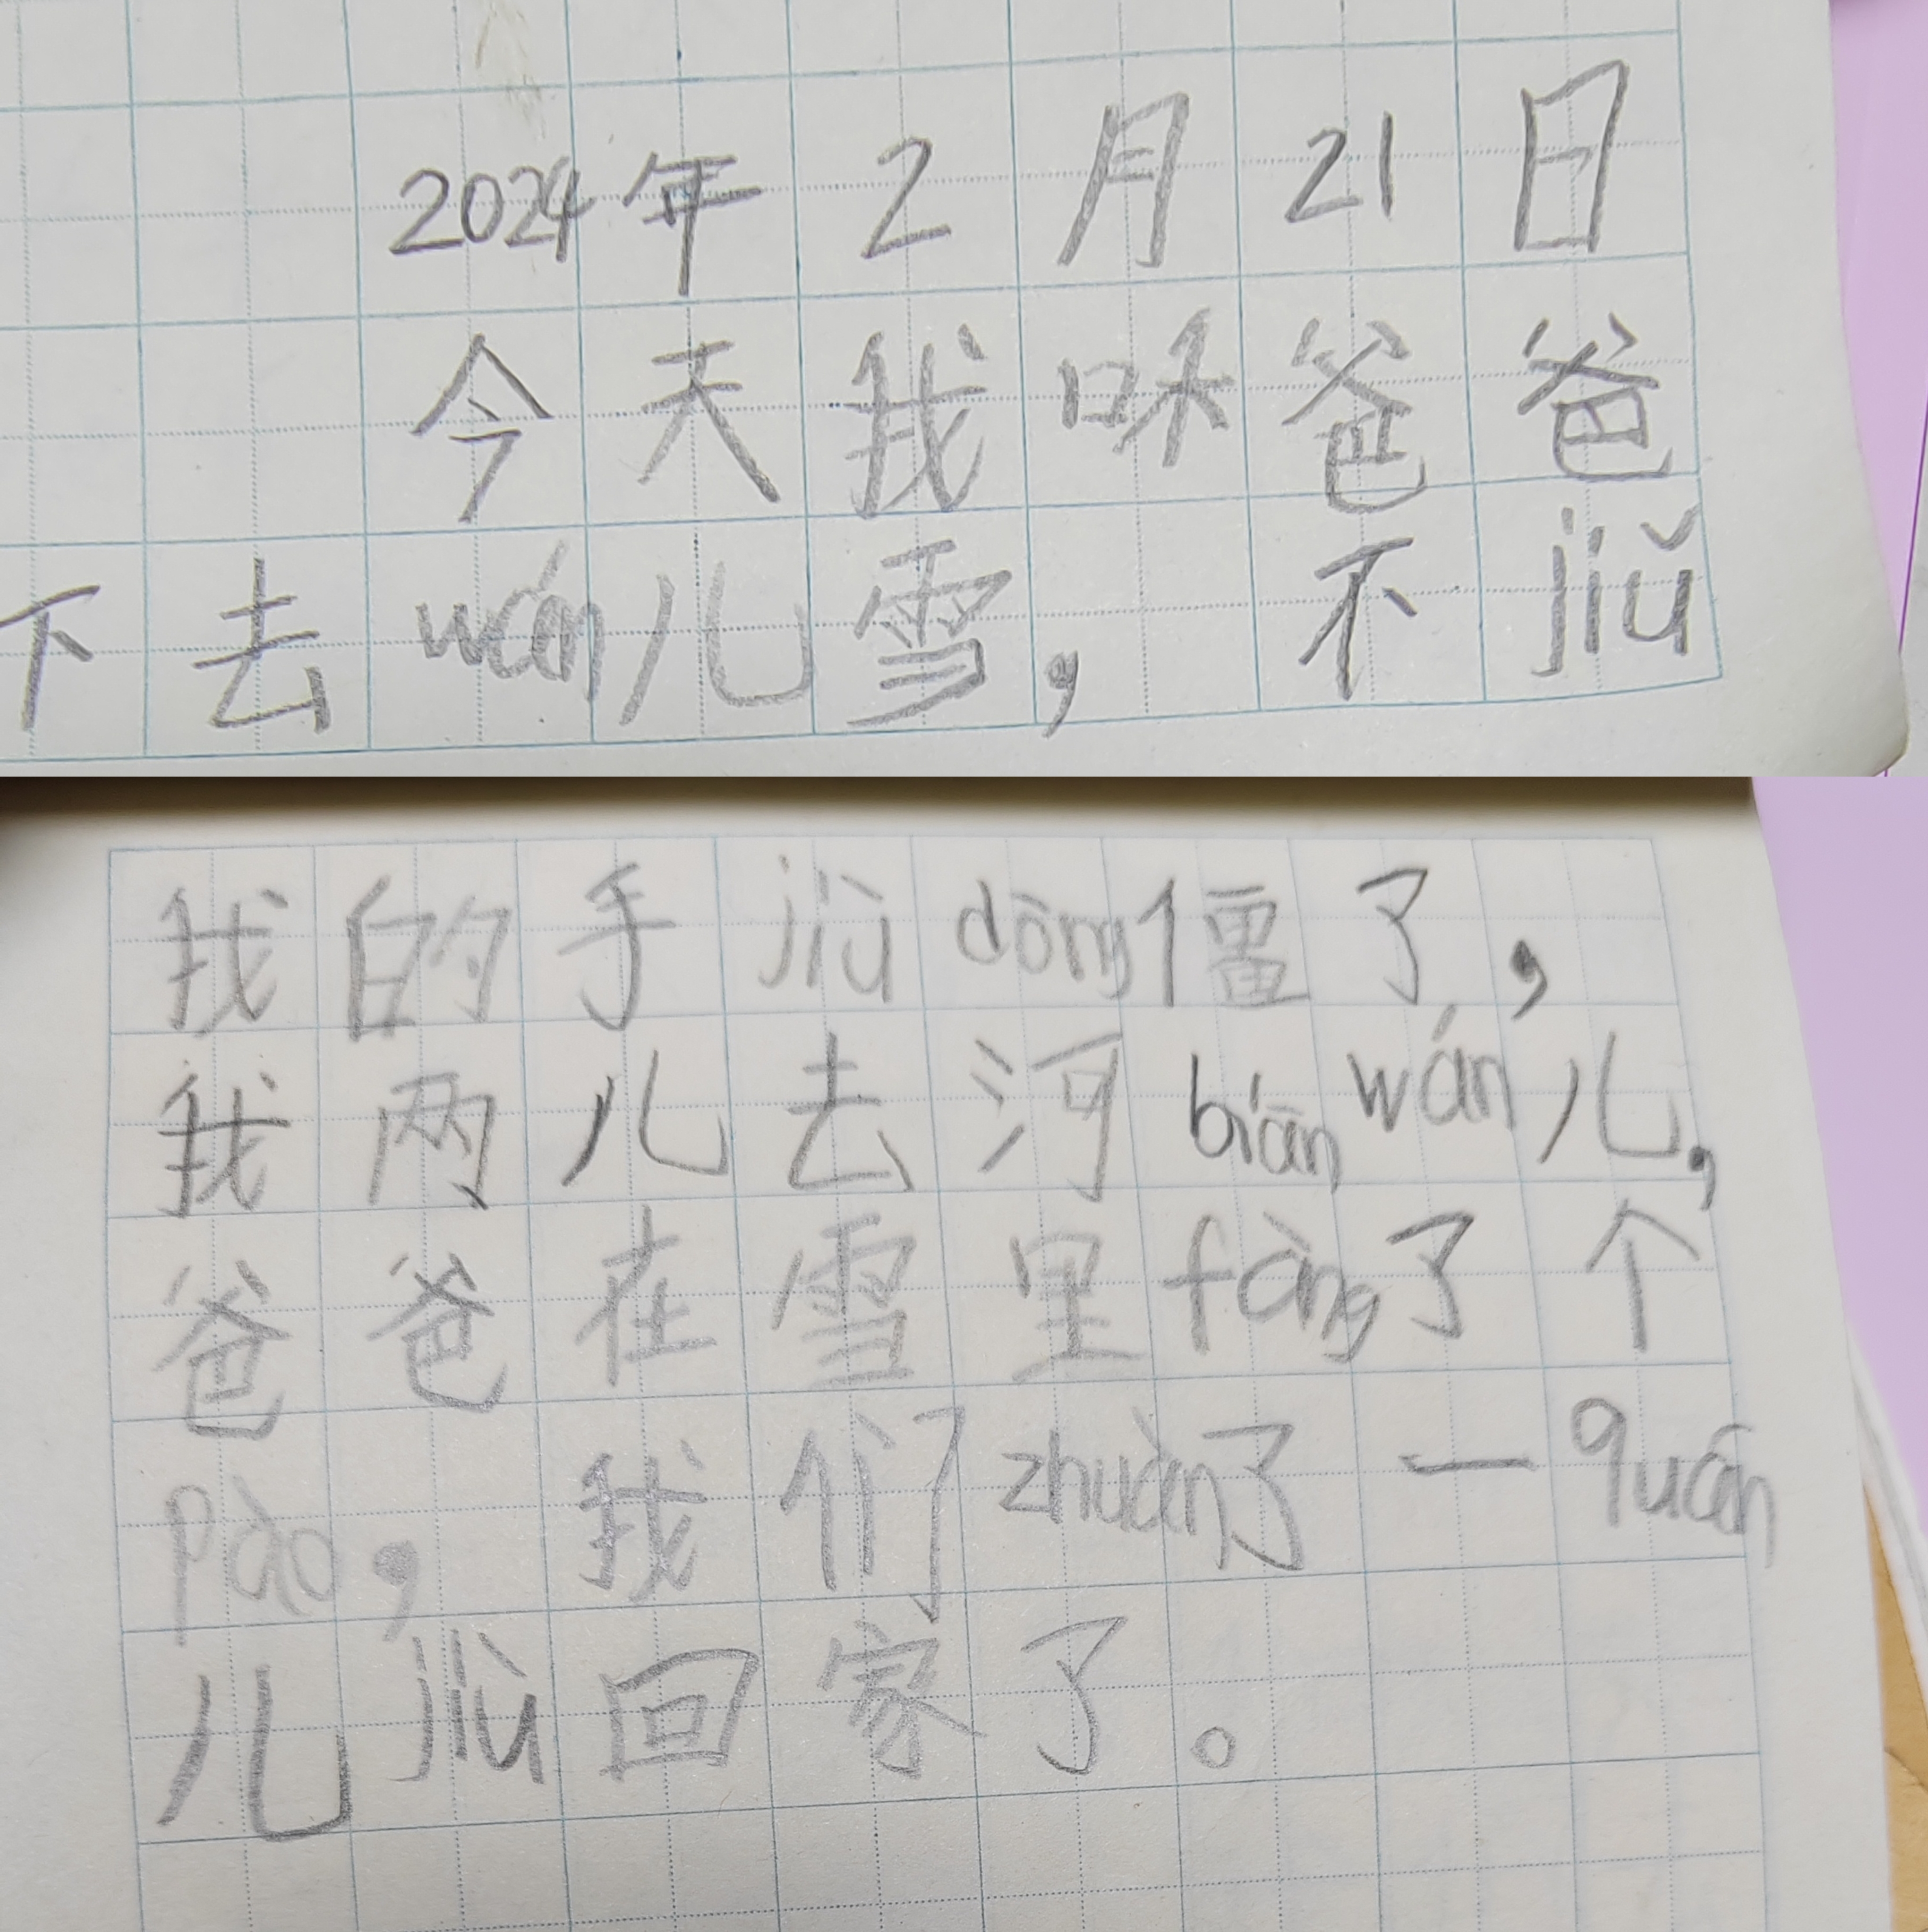 2024年2月21日
今天我味爸爸
下去wán儿雪，不jiǔ
我的手jiù dòng僵了，
我两儿去河biān wán儿，
爸爸在雪里fàng了个
pào，我们zhuàn了一quān
儿jiù回家了。